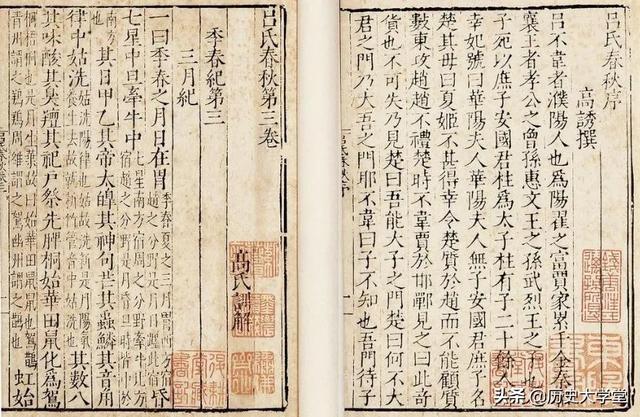 呂氏春秋序
高誘撰
呂不韋者濮陽人也為陽翟之富賈家累千金秦
襄王者孝公之曾孫惠文王之孫武烈王之子
子死以庶子安國君柱為太子柱有子二十餘
妃號曰華陽夫人華陽夫人無子安國君庶子名
楚其母曰夏姬不甚得幸令楚質於趙而不能顧質
數東攻趙趙不禮楚時不韋賈於邯鄲見之曰此奇
貨也不可失乃見楚曰吾能大子之門楚曰何不大
君之門乃大吾之門耶不韋曰子不知也吾門待子
呂氏春秋第三卷
季春紀第三
高氏訓解
三月紀
一曰季春之月日在胃季春夏之三月胃西方宿趙之分野是月日躔此宿昏
七星中旦牽牛中七星南方宿周之分野牽牛北方宿越之分野是月昏旦時皆中於
南方其日甲乙其帝太皞其神句芒其蟲鱗其音角
律中姑洗姑洗陽律也其數八
其味酸其臭羶其祀戶祭先脾桐始華田鼠化為鴽
虹始
头条 @历史大学堂